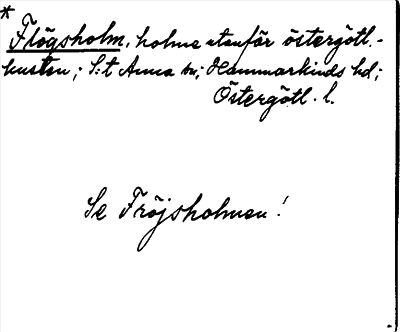 *
Flögsholm, holme utanför östergötl.-
kusten; S:t Anna sn; Hammarkinds hd;
Östergötl. l.
Se Fröjsholmen!